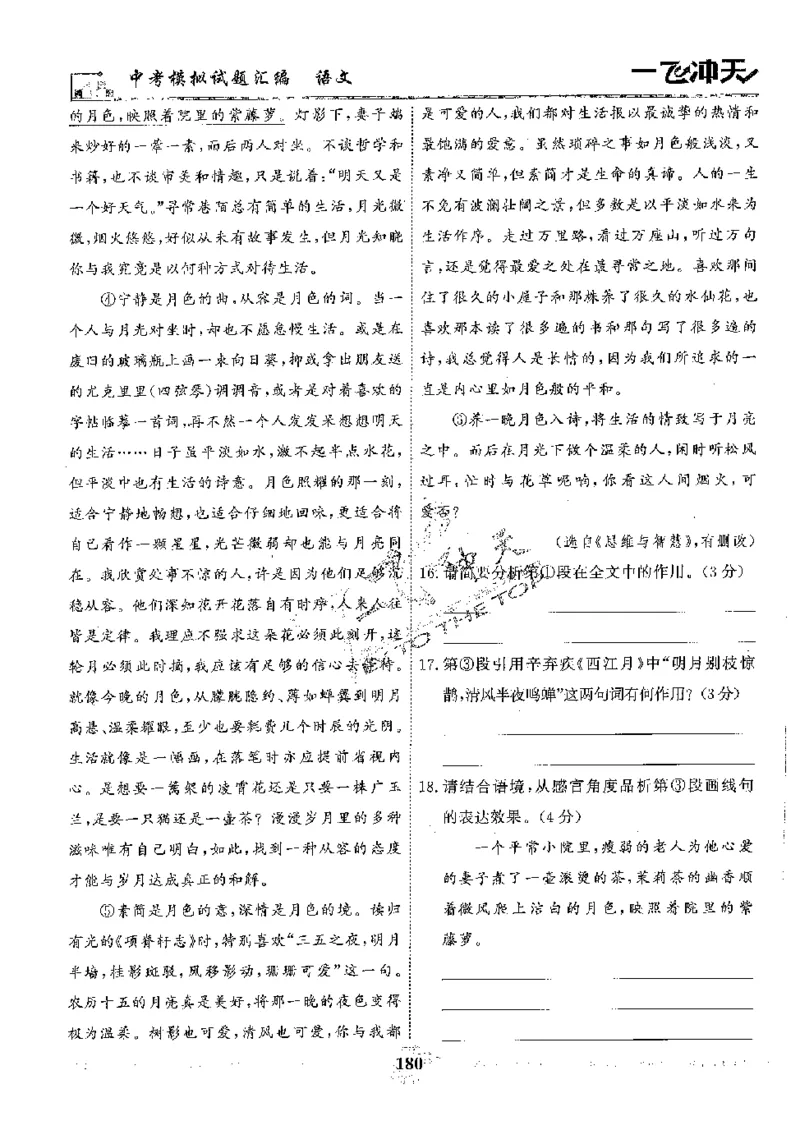 中考模拟试题汇编 语文
一飞冲天
的月色,映照着院里的紫藤萝。灯影下,妻子端
来炒好的一荤一素,而后两人对坐。不谈哲学和
书籍,也不谈审美和情趣,只是说着:“明天又是
一个好天气。”寻常巷陌总有简单的生活,月光微
微,烟火悠悠,好似从未有故事发生,但月光知晓
你与我究竟是以何种方式对待生活。
④宁静是月色的曲,从容是月色的词。当一
个人与月光对坐时,却也不愿怠慢生活。或是在
废旧的玻璃瓶上画一束向日葵,抑或拿出朋友送
的尤克里里(四弦琴)调调音,或者是对着喜欢的
字帖临摹一首词,再不然一个人发发呆想想明天
的生活……日子虽平淡如水,激不起半点水花,
但平淡中也有生活的诗意。月色照耀的那一刻,
适合宁静地畅想,也适合仔细地回味,更适合将
自己看作一颗星星,光芒微弱却也能与月亮同
在。我欣赏处事不惊的人,许是因为他们足够沉
稳从容。他们深知花开花落自有时序,人来人往
皆是定律。我理应不强求这朵花必须此刻开,这
轮月必须此时摘,我应该有足够的信心去等待。
就像今晚的月色,从朦胧隐约、薄如蝉翼到明月
高悬、温柔耀眼,至少也要耗费几个时辰的光阴。
生活就像是一幅画,在落笔时亦应提前省视内
心。是想要一篱架的凌霄花还是只要一株广玉
兰,是要一只猫还是一壶茶?漫漫岁月里的多种
滋味唯有自己明白,如此,找到一种从容的态度
才能与岁月达成真正的和解。
⑤素简是月色的意,深情是月色的境。读归
有光的《项脊轩志》时,特别喜欢“三五之夜,明月
半墙,桂影斑驳,风移影动,珊珊可爱”这一句。
农历十五的月亮真是美好,将那一晚的夜色变得
极为温柔。树影也可爱,清风也可爱,你与我都
是可爱的人,我们都对生活报以最诚挚的热情和
最饱满的爱意。虽然琐碎之事如月色般浅淡,又
素净又简单,但素简才是生命的真谛。人的一生
不免有波澜壮阔之景,但多数是以平淡如水来为
生活作序。走过万里路,看过万座山,听过万句
言,还是觉得最爱之处在最寻常之地。喜欢那间
住了很久的小屋子和那株养了很久的水仙花,也
喜欢那本读了很多遍的书和那句写了很多遍的
诗,我总觉得人是长情的,因为我们所追求的一
直是内心里如月色般的平和。
⑥养一晚月色入诗,将生活的情致写于月亮
之中。而后在月光下做个温柔的人,闲时听松风
过耳,忙时与花草呢喃,你看这人间烟火,可
爱否?
(选自《思维与智慧》,有删改)
16.请简要分析第①段在全文中的作用。(3分)
17.第③段引用辛弃疾《西江月》中“明月别枝惊
鹊,清风半夜鸣蝉”这两句词有何作用?(3分)
18.请结合语境,从感官角度品析第③段画线句
的表达效果。(4分)
一个平常小院里,瘦弱的老人为他心爱
的妻子煮了一壶滚烫的茶,茉莉茶的幽香顺
着微风爬上洁白的月色,映照着院里的紫
藤萝。
180
TO THE TOP